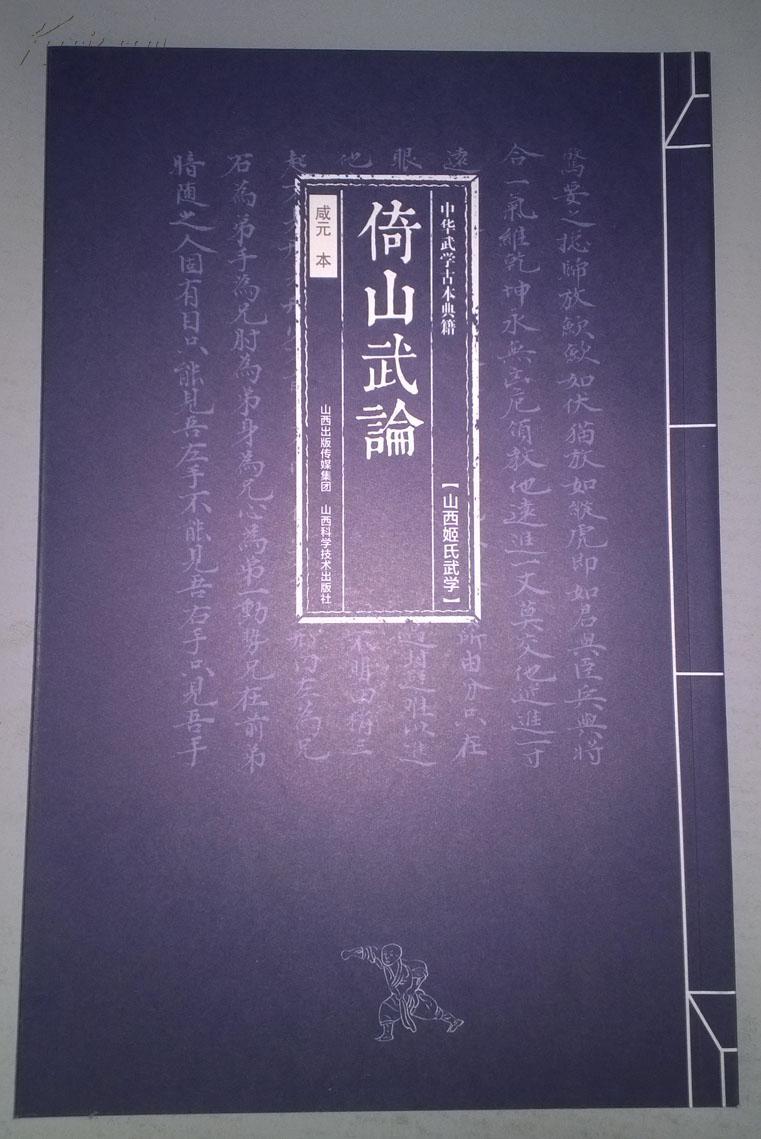 中华武学古本典籍
【山西姬氏武学】
倚山武論
咸元 本
山西出版传媒集团 山西科学技术出版社
如伏猫放如縱虎即如君與臣兵與將
合一氣維乾坤永無領教他遠進一丈莫交他近進一寸
遠 所由分只在
眼
他 不明
起 左為兄
石為弟手為兄肘為弟身為兄心為弟一動勢兄在前弟
暗随之人固有目只能見吾左手不能見吾右手只見吾手